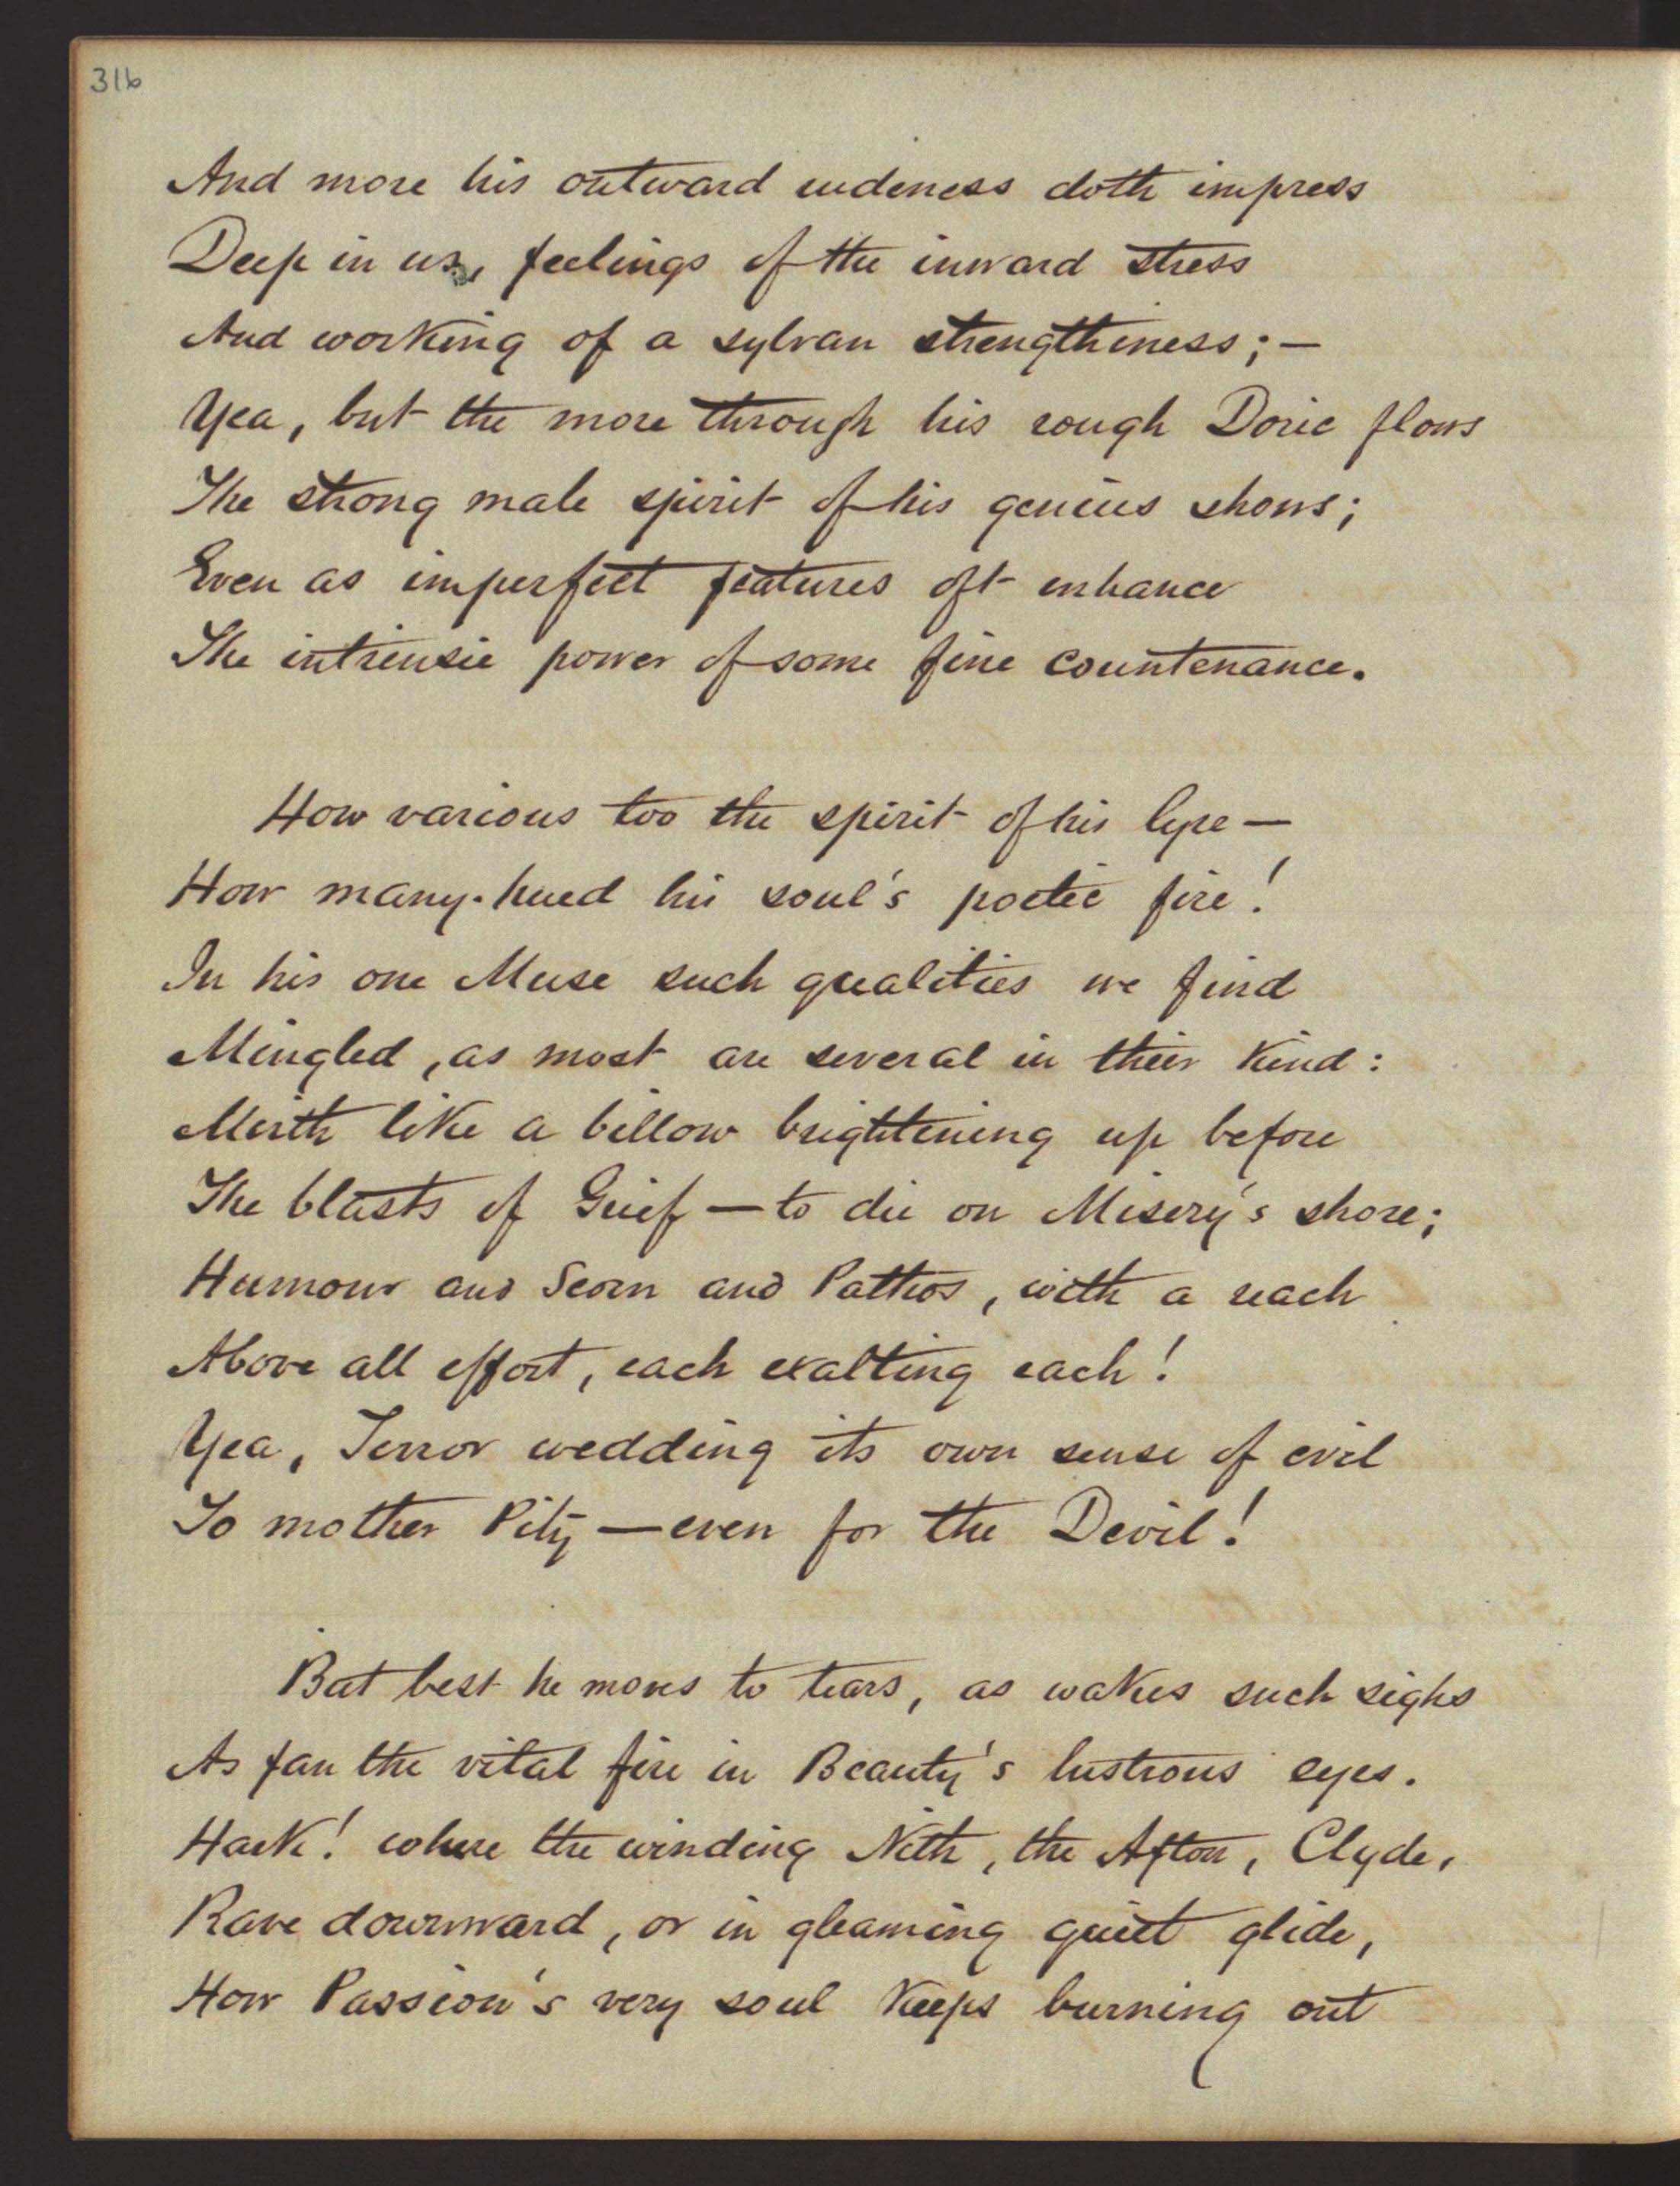 316
And more his outward rudeness doth impress
Deep in us, feelings of the inward stress
And working of a sylvan strengthiness; —
Yea, but the more through his rough Doric flows
The strong male spirit of his genius shows;
Even as imperfect features oft enhance
The intrinsic power of some fine countenance.
How various too the spirit of his lyre —
How many-hued his soul's poetic fire!
In his one Muse such qualities we find
Mingled, as most are several in their kind:
Mirth like a billow brightening up before
The blasts of Grief — to die on Misery's shore;
Humour and Scorn and Pathos, with a reach
Above all effort, each exalting each!
Yea, Terror wedding its own sense of evil
To mother Pity — even for the Devil!
But best he moves to tears, as wakes such sighs
As fan the vital fire in Beauty's lustrous eyes.
Hark! where the winding Nith, the Afton, Clyde,
Rave downward, or in gleaming quiet glide,
How Passion's very soul keeps burning out